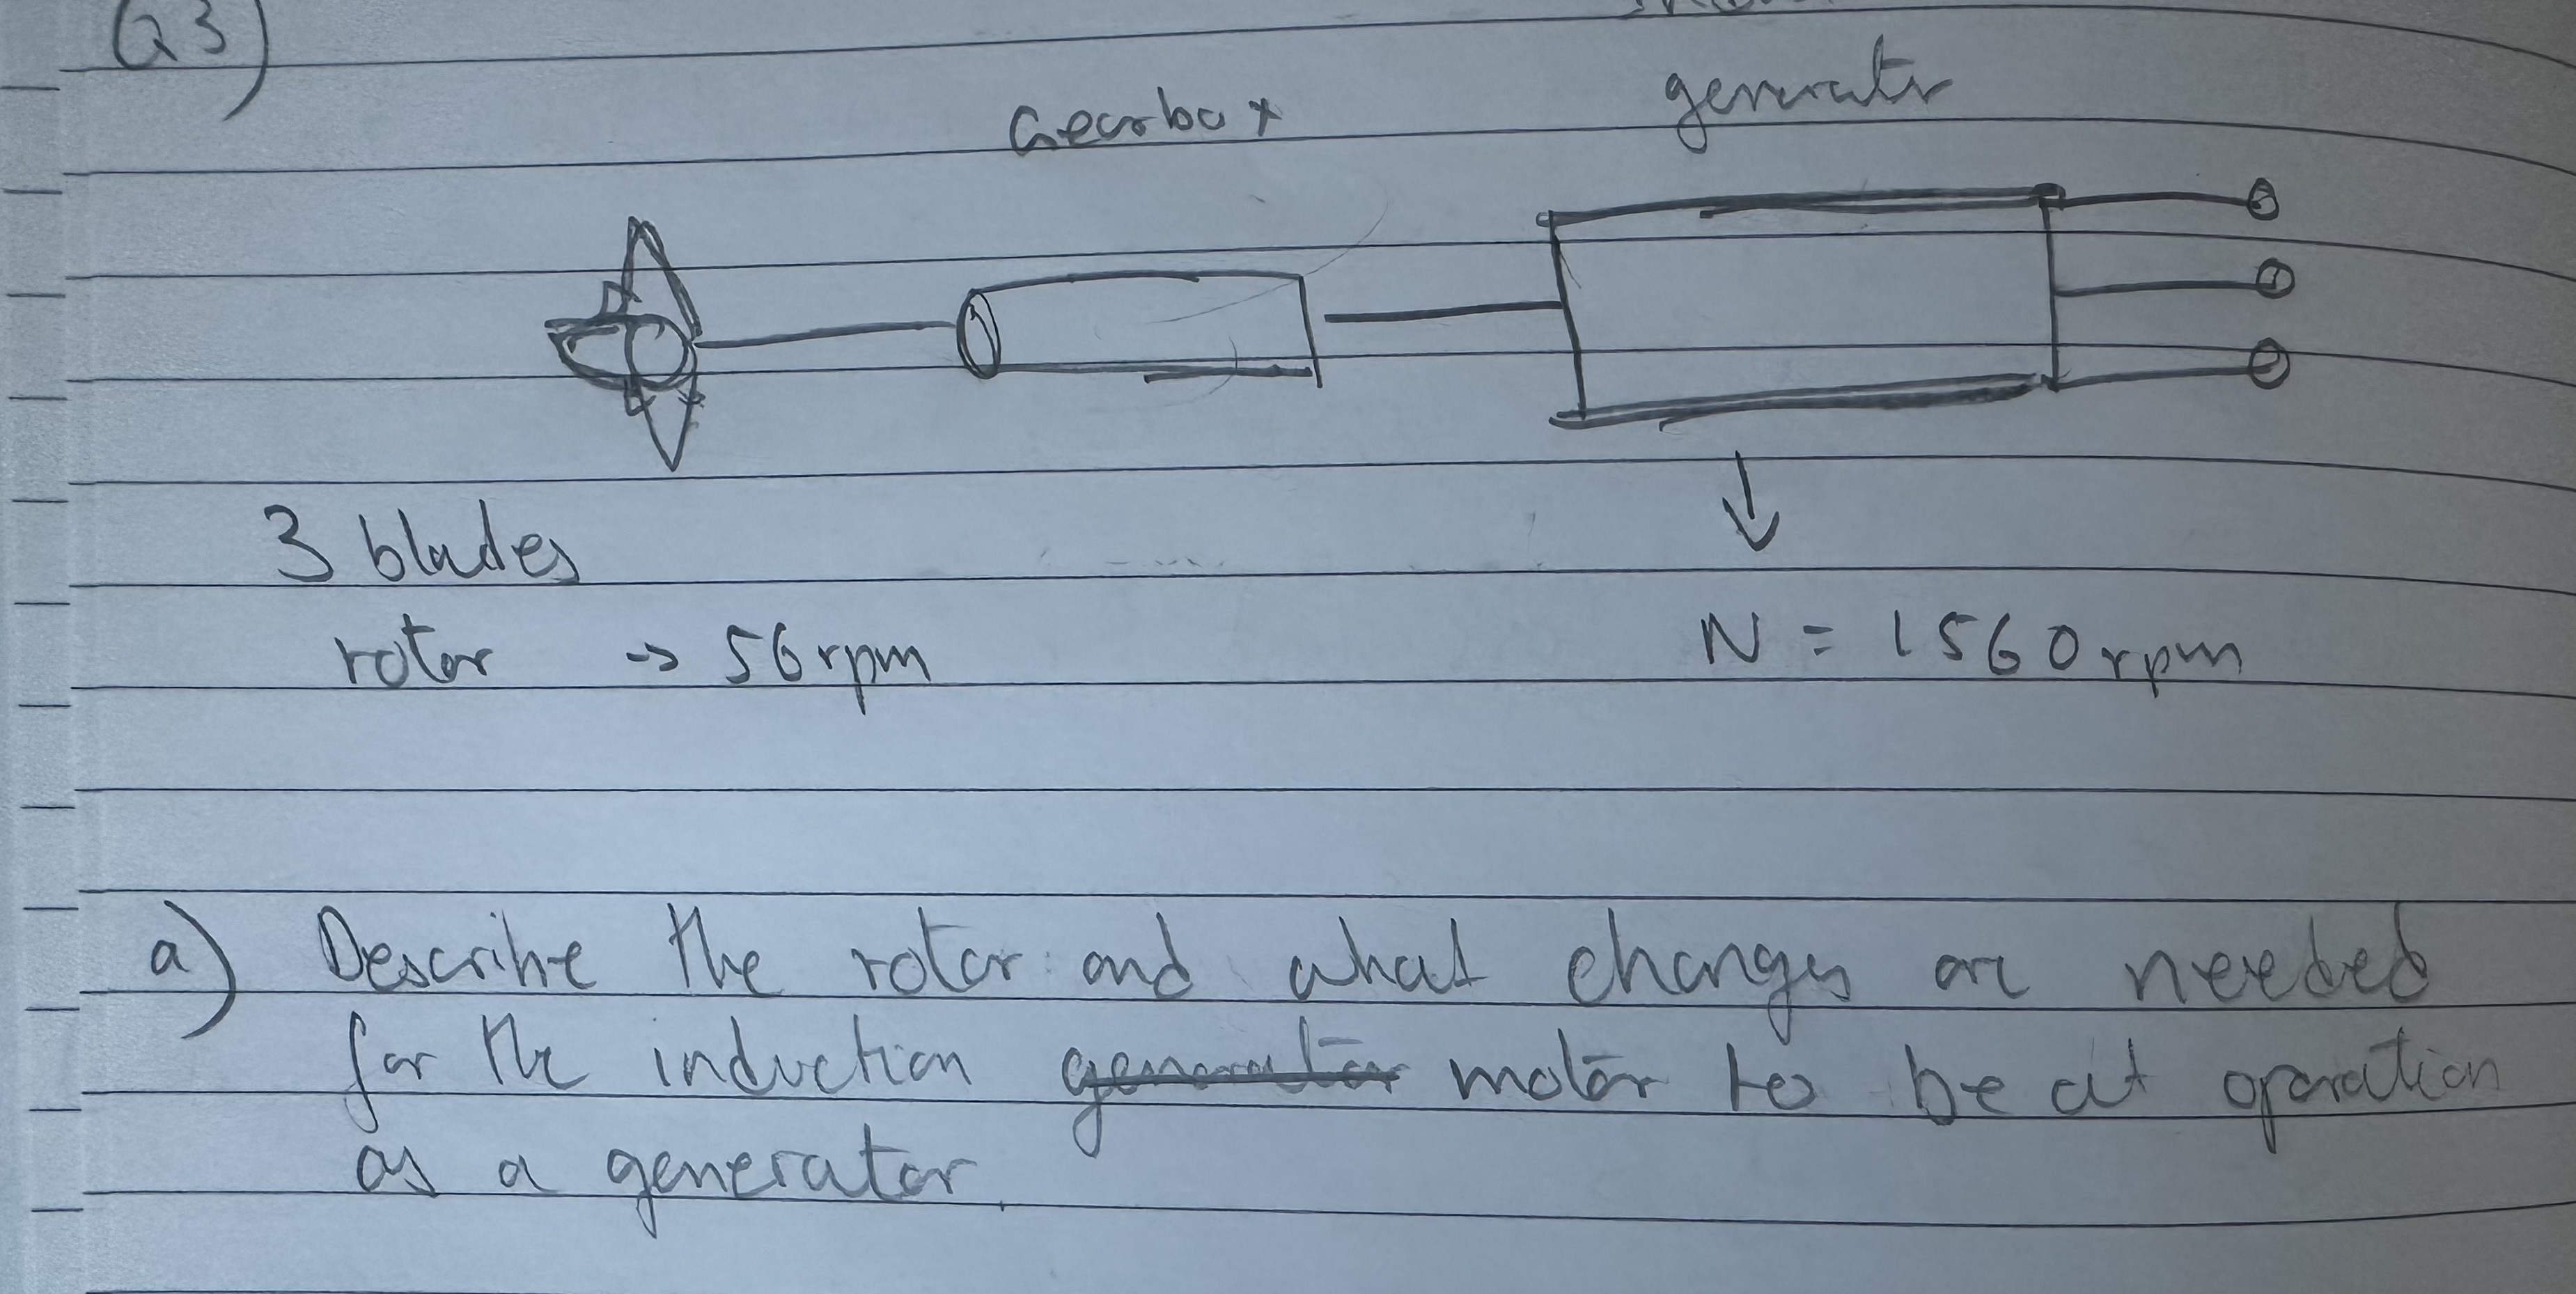 Q3)
Gearbox
generator
3 blades
rotor -> 56rpm
N = 1560rpm
a) Describe the rotor and what changes are needed
for the induction generator motor to be at operation
as a generator.